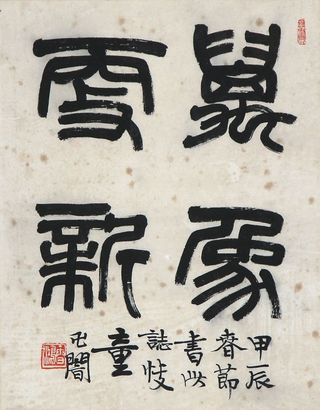 萬象
更新
甲辰
春節
書此
誌
童
闇